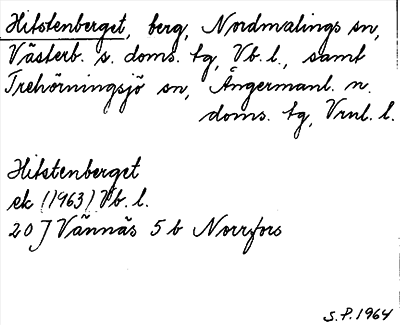 Hitstenberget, berg, Nordmalings sn,
Västerb. s. doms. tg, Vb. l., samt
Trehörningsjö sn, Ångermanl. n.
doms. tg, Vrnl. l.
Hitstenberget
ek (1963) Vb. l.
20 J Vännäs 5 b Norrfors
S.P. 1964